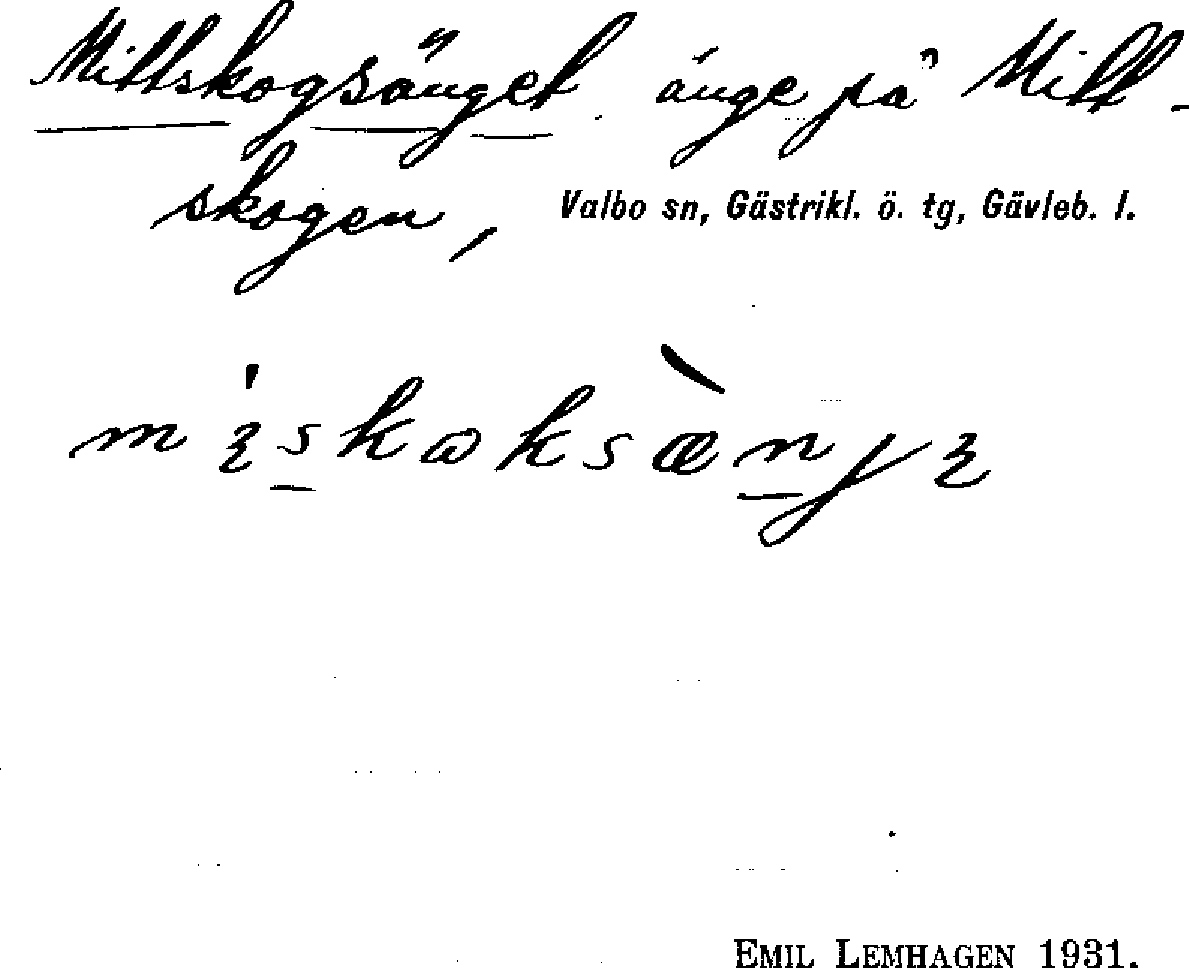 Mittskogsänget änge på Mitt-
skogen, Valbo sn, Gästrikl. ö. tg, Gävleb. l.
EMIL LEMHAGEN 1931.